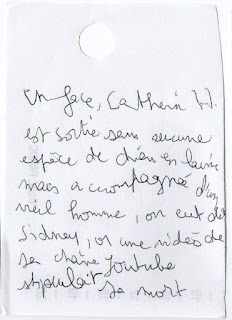 En face, Catherin H.
est sortie sans aucune
espèce de chien en laisse
mais accompagnée d'un
vieil homme, on eut dit
Sidney, or une vidéo de
sa chaîne Youtube
stipulait sa mort